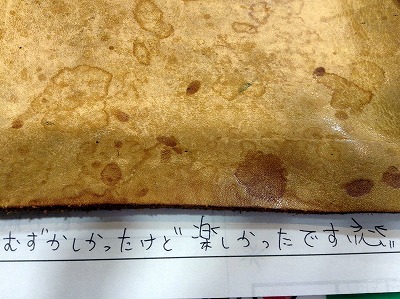 むずかしかったけど楽しかったです